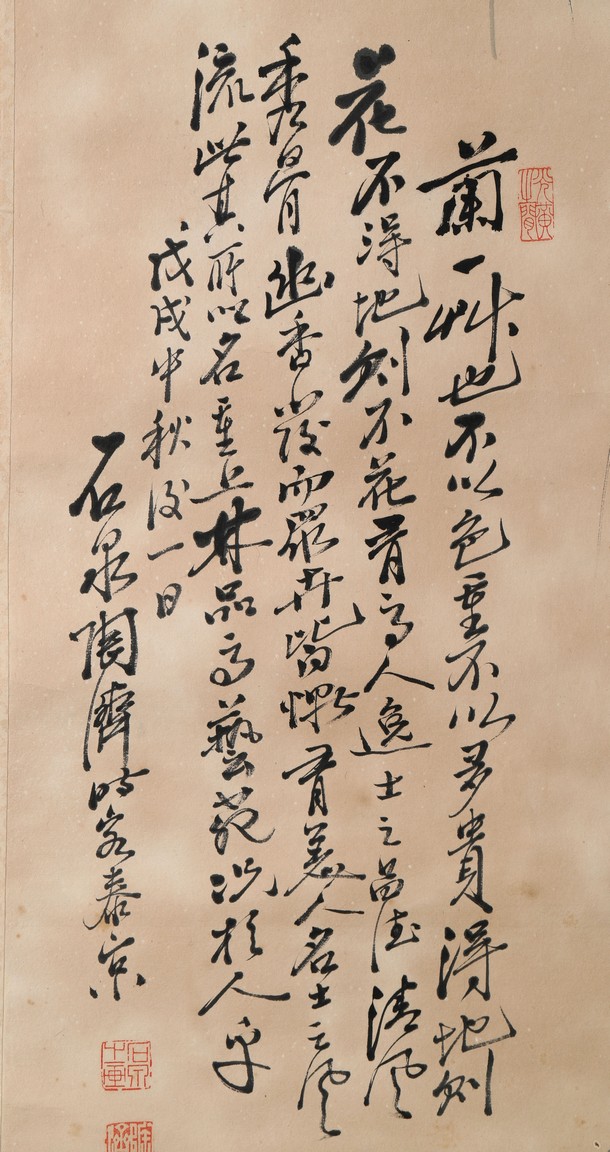 蘭一艸也不以色重不以多貴得地則
花不得地則不花有高人逸士之昌德清風
秀骨幽香發而眾卉皆慚有美人名士之風
流此其所以名重上林品高藝苑況於人乎
戊戌中秋後一日
石泉陶濟時客泰京